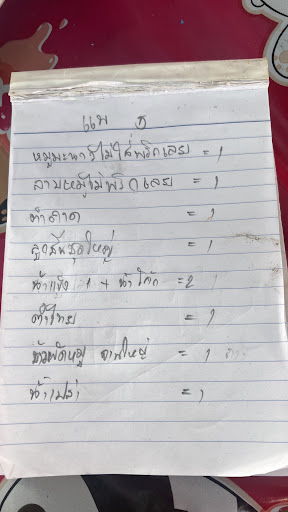 แพ 5
หมูมะนาวไม่ใส่พริกเลย = 1
ลาบหมูไม่พริกเลย = 1
ตำถาด = 1
ลูกชิ้นชุดใหญ่ = 1
น้ำแข็ง 1 + น้ำโค้ก = 2
ตำไทย = 1
ข้าวผัดหมู จานใหญ่ = 1
น้ำเปล่า = 1